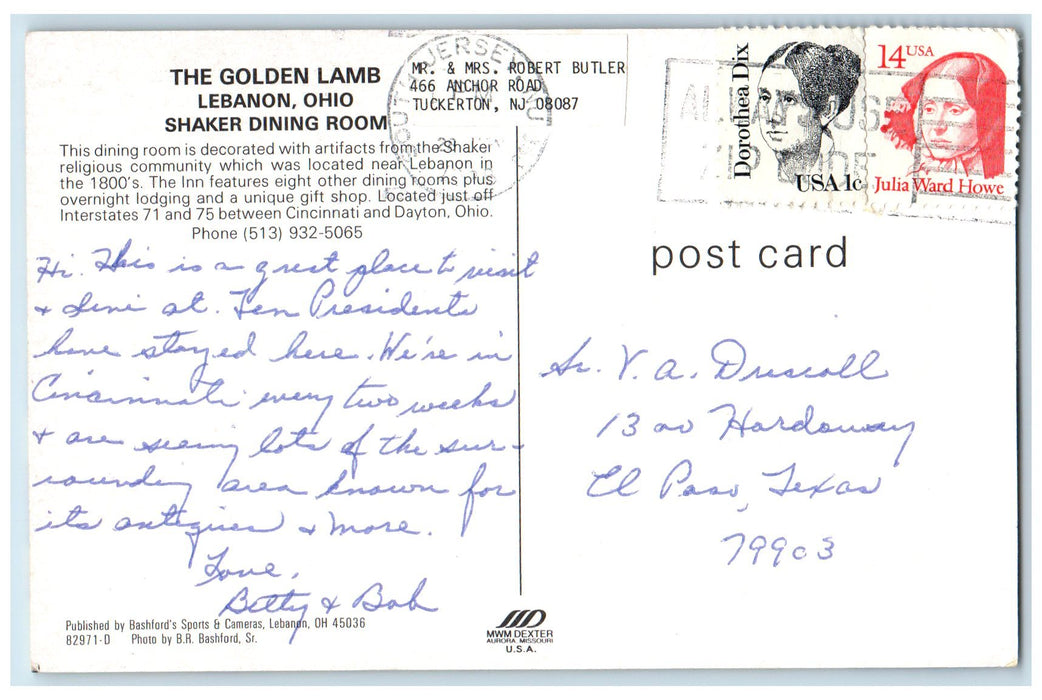 THE GOLDEN LAMB
LEBANON, OHIO
SHAKER DINING ROOM
This dining room is decorated with artifacts from the Shaker
religious community which was located near Lebanon in
the 1800's. The Inn features eight other dining rooms plus
overnight lodging and a unique gift shop. Located just off
Interstates 71 and 75 between Cincinnati and Dayton, Ohio.
Phone (513) 932-5065
Hi. This is a great place to visit
& dine at. Ten Presidents
have stayed here. We're in
Cincinnati every two weeks
& are seeing lots of the sur-
rounding area known for
its antiques & more.
Love,
Betty & Bob
Published by Bashford's Sports & Cameras, Lebanon, OH 45036
82971-D Photo by B.R. Bashford, Sr.
MWM DEXTER
AURORA MISSOURI
U.S.A.
SOUTH JERSEY
MR. & MRS. ROBERT BUTLER
466 ANCHOR ROAD
TUCKERTON, NJ 08087
Dorothea Dix
USA 1c
14 USA
Julia Ward Howe
ALWAYS USE
ZIP CODE
post card
Sr. V. A. Driscoll
1300 Hardaway
El Paso, Texas
79903